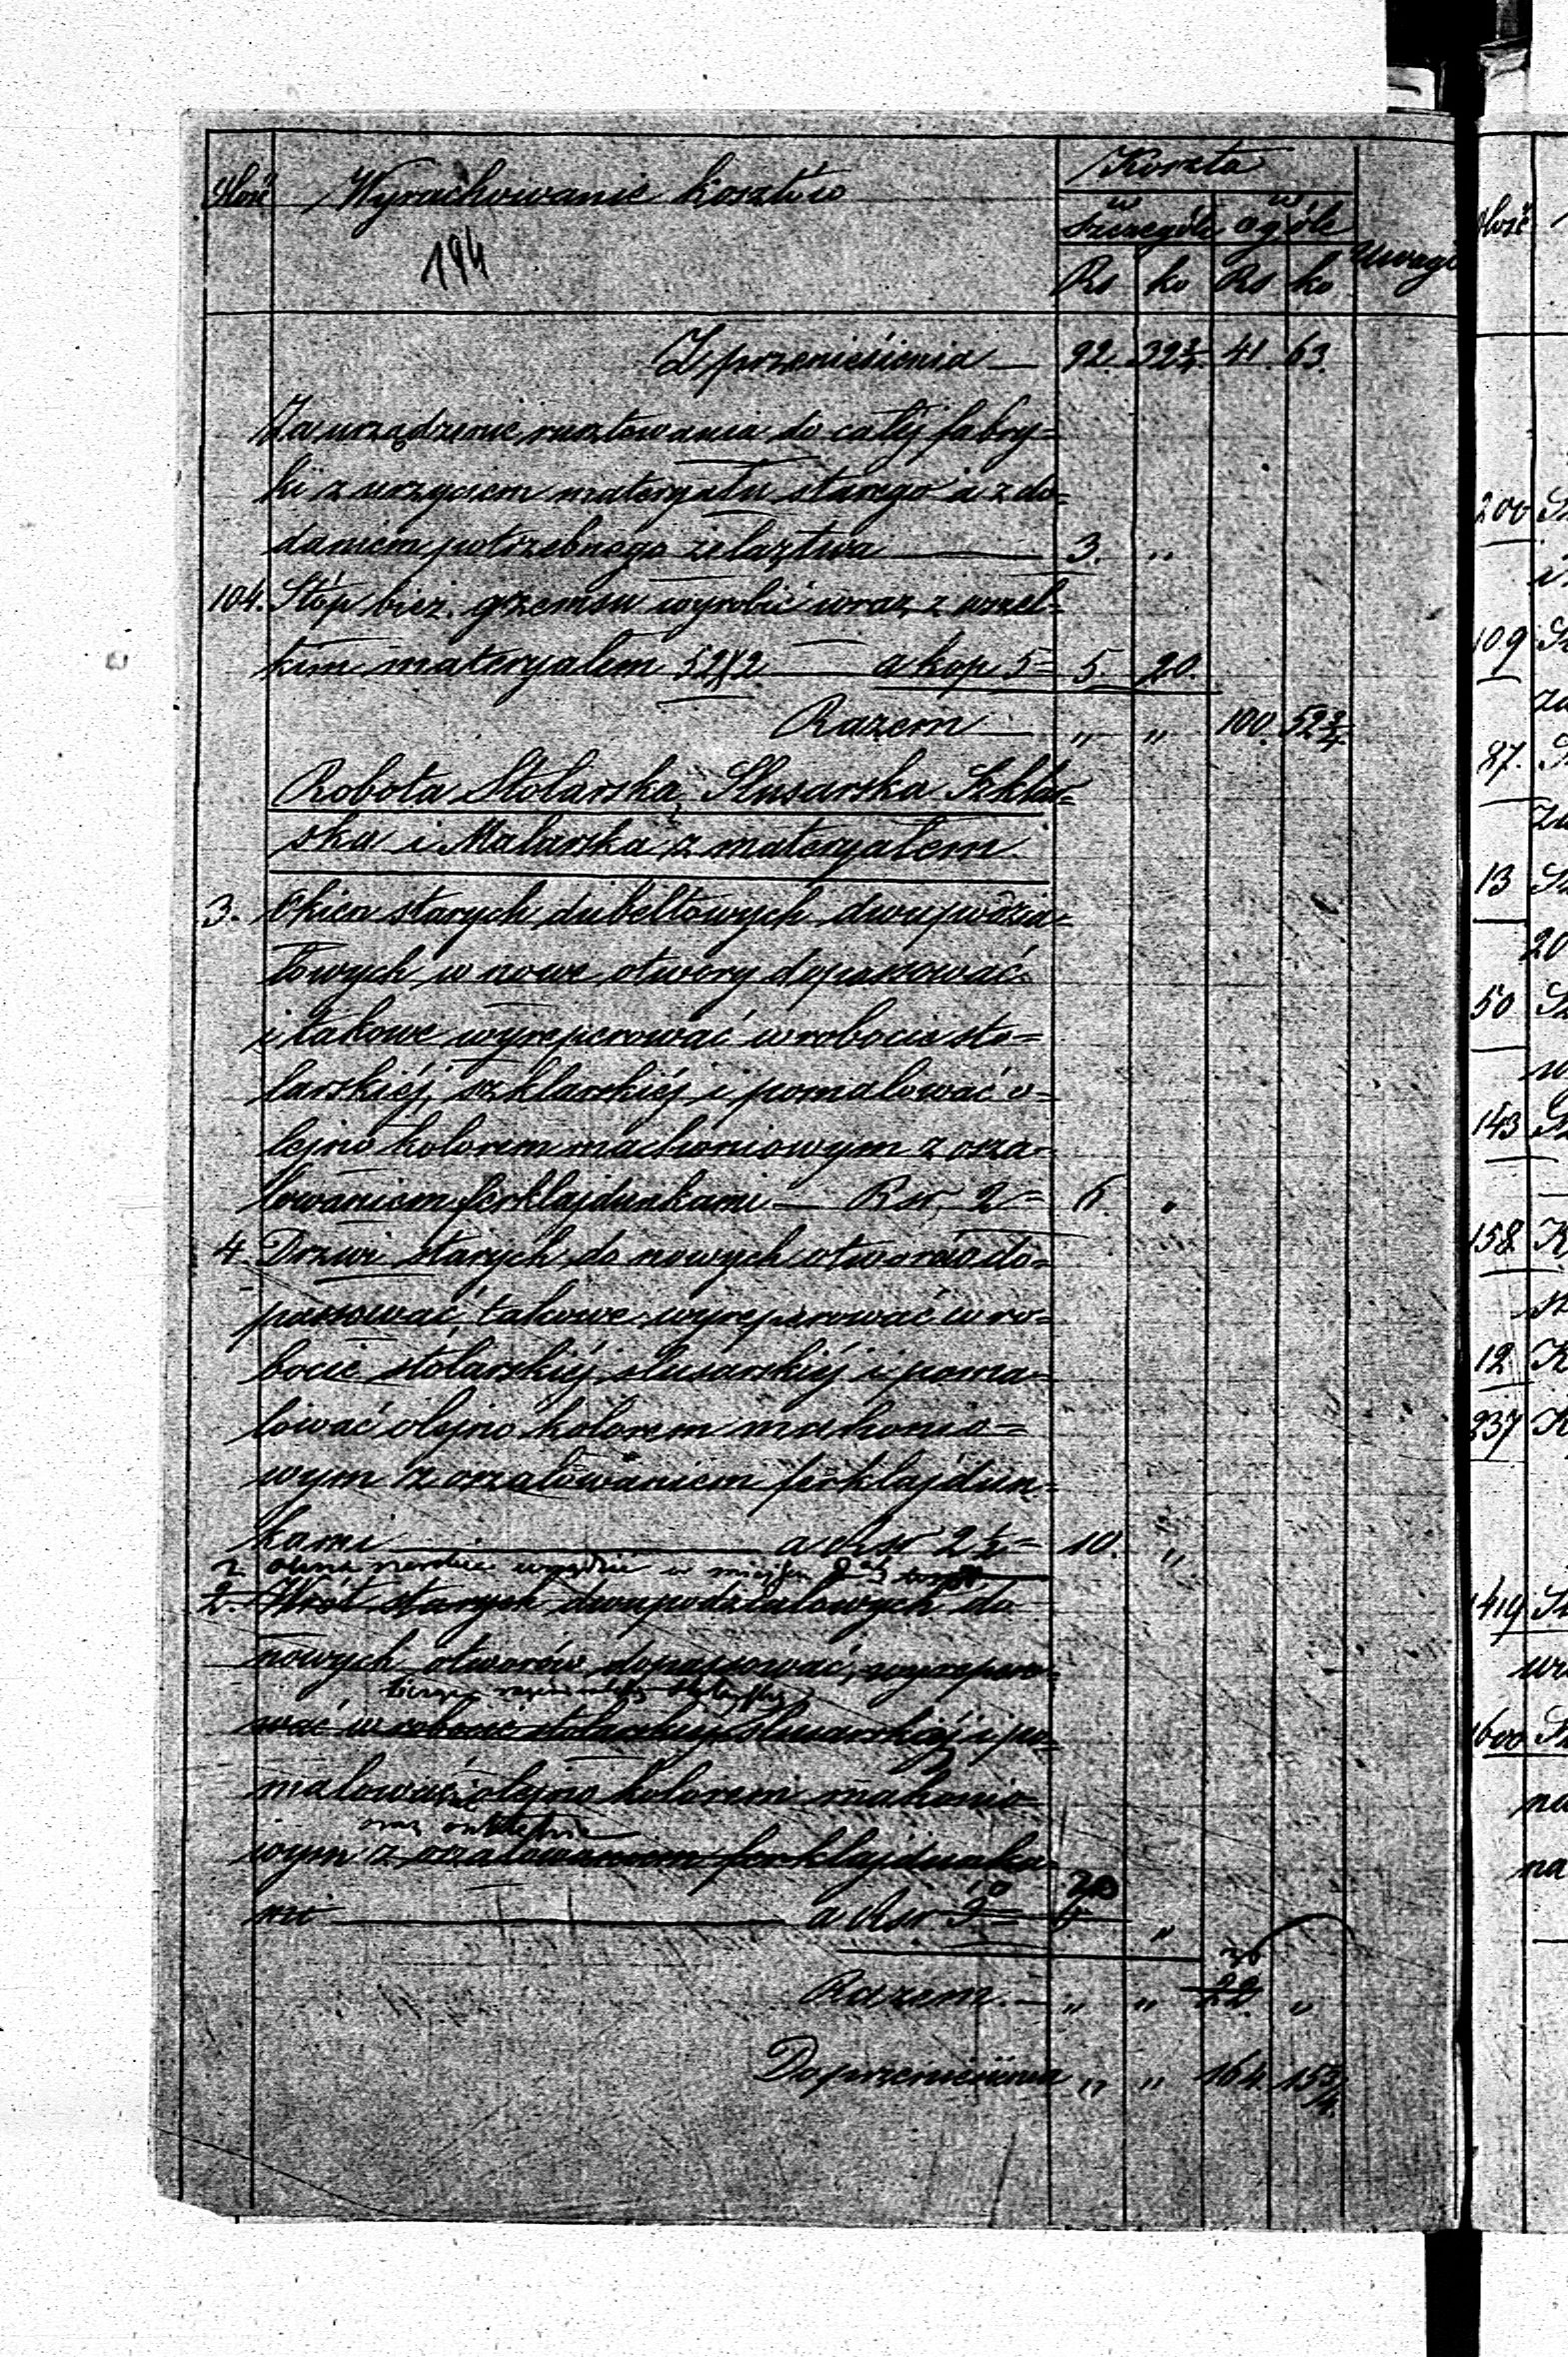 Ilość Wyrachowanie kosztów Koszta
w szczególe w ogóle Uwagi
194
Rs ko Rs ko
Z przeniesienia — 92. 32¾. 41. 63.
Za urządzenie rusztowania do całéj fabry=
ki z urzyciem materyału starego i z do=
daniem potrzebnego żelaztwa — 3. "
104. Stóp bież. gzemsu wyrobić wraz z wszel=
kim materyałem 52X2 — a kop 5= 5. 20.
Razem — " " 100. 52¾
Robota Stolarska, Slusarska Szklar=
ska i Malarska z materyałem.
3. Okien starych dubeltowych dwupodzia=
łowych w nowe otwory dopassować
i takowe wyreperować w robocie sto=
larskiéj, szklarskiéj i pomalować o=
lejno kolorem machoniowym z osza=
lowaniem ferklajdunkami — Rsr. 2= 6. "
4. Drzwi starych do nowych otworów do=
passować takowe wyreperować w ro=
bocie stolarskiéj slusarskiéj i poma=
lować olejno kolorem mahonio=
wym z oszalowaniem ferklajdun=
kami — a Rsr 2½= 10. "
2 okna w miejscu
2. Wrót starych dwupodziałowych do
nowych otworów dopassować, wyrepero=
wać w robocie stolarskiej slusarskiéj i po=
malować olejno kolorem mahonio=
wym z oszalowaniem ferklajdunka=
mi — a Rsr 3= 10 6 20 "
36
Razem. — " " 22. "
Do przeniesienia " " 164. 15¾.
Ilość
200
109
za
87.
13
20
50
143
158 K
12 K
237 K
1419
1600
na
na